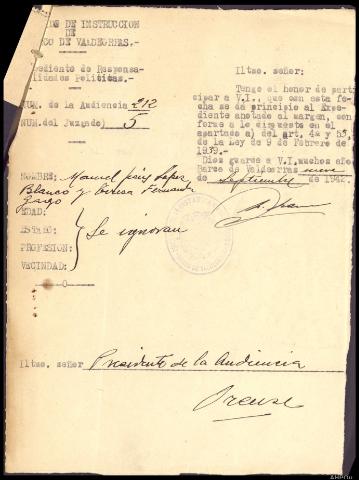 DE INSTRUCCION
DE
CO DE VALDEORRAS.-
ediente de Responsa-
lidades Politicas.-
NUM. de la Audiencia 212
NUM.del Juzgado) 5
Iltmo. señor:
Tengo el honor de parti
cipar a V.I., que con esta
fecha se da principio al Expe-
diente anotado al margen, con
forme a lo dispuesto en el
apartado a) del art. 4º y 53
de la Ley de 9 de Febrero de
1939.-
Dios guarde a V.I. muchos años
Barco de Valdeorras nueve
de Septiembre de 1942.-
NOMBRE: Manuel López
Blanco y Fernandez
EDAD:
ESTADO:
PROFESION:
VECINDAD:
Se ignoran
--------O--------
Iltmo. señor Presidente de la Audiencia
Orense